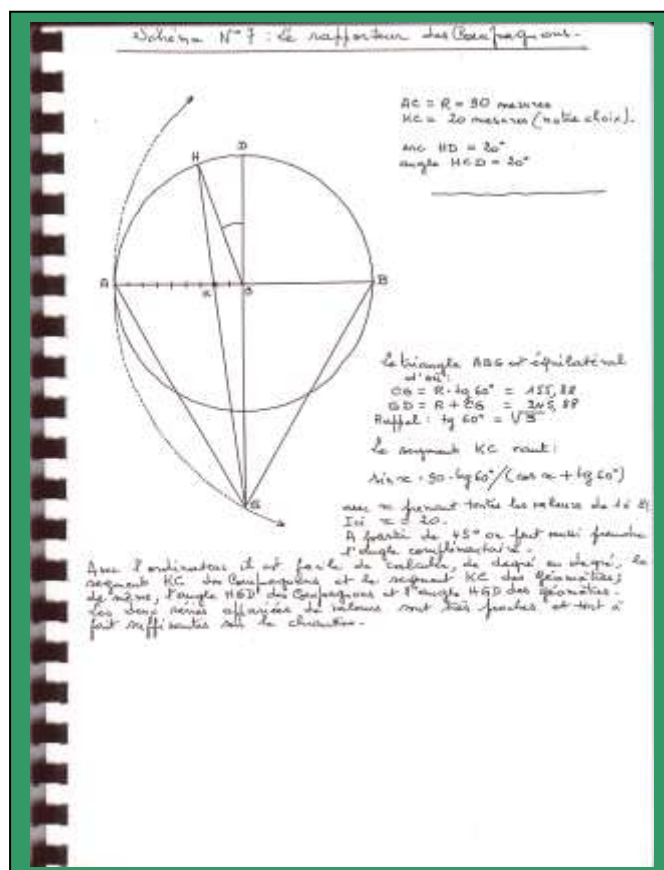 Schéma N° 7 : Le rapporteur des Compagnons.
AC = R = 90 mesures
KC = 20 mesures (notre choix).
arc HD = 20°
angle HCD = 20°
D
H
A
K
C
B
G
Le triangle ABG est équilatéral
d'où :
CG = R. tg 60° = 155,88
GD = R + CG = 245,88
Rappel : tg 60° = √3
Le segment KC vaut :
sin x . 90 . tg 60° / (cos x + tg 60°)
avec x prenant toutes les valeurs de 1 à
Ici x = 20.
A partir de 45° on peut aussi prendre
l'angle complémentaire.
Avec l'ordinateur il est facile de calculer, de degré en degré, le
segment KC des Compagnons et le segment KC des Géomètres;
de même, l'angle HGD des Compagnons et l'angle HGD des Géomètres.
Les deux séries appariées de valeurs sont très proches et tout à
fait suffisantes sur le chantier.